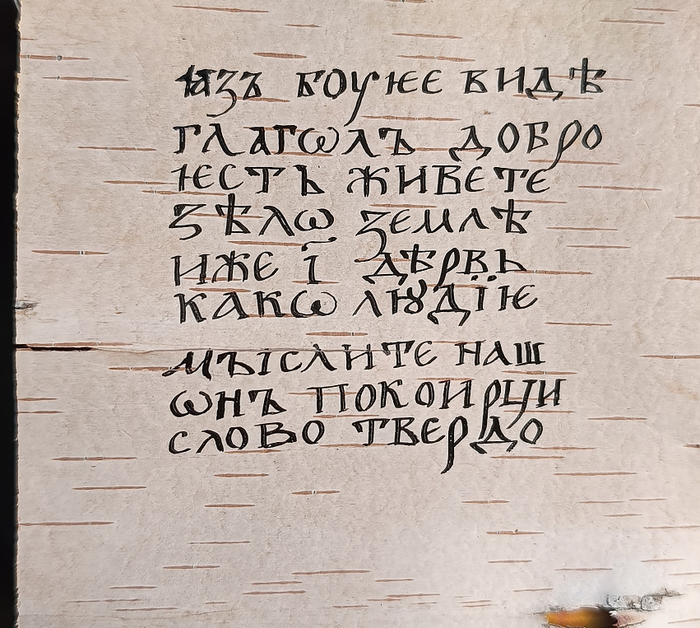 ꙗзъ боукіе видѣ
глагѡлъ добро
ѥсть живѣте
ѕѣлѡ землѣ
иже ї дѣрвь
какѡ люꙋдїѥ
мъіслите наш
ѡнъ покои рци
слово твердо